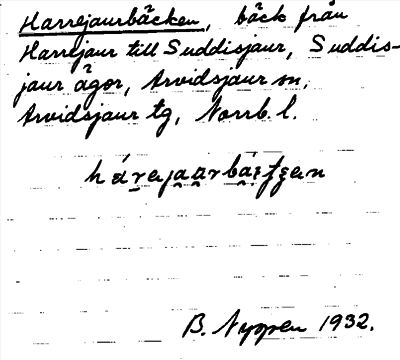 Harrejaurbäcken, bäck från
Harrejaur till Suddisjaur, Suddis-
jaur ägor, Arvidsjaur sn,
Arvidsjaur tg, Norrb. l.
B. Nygren 1932.